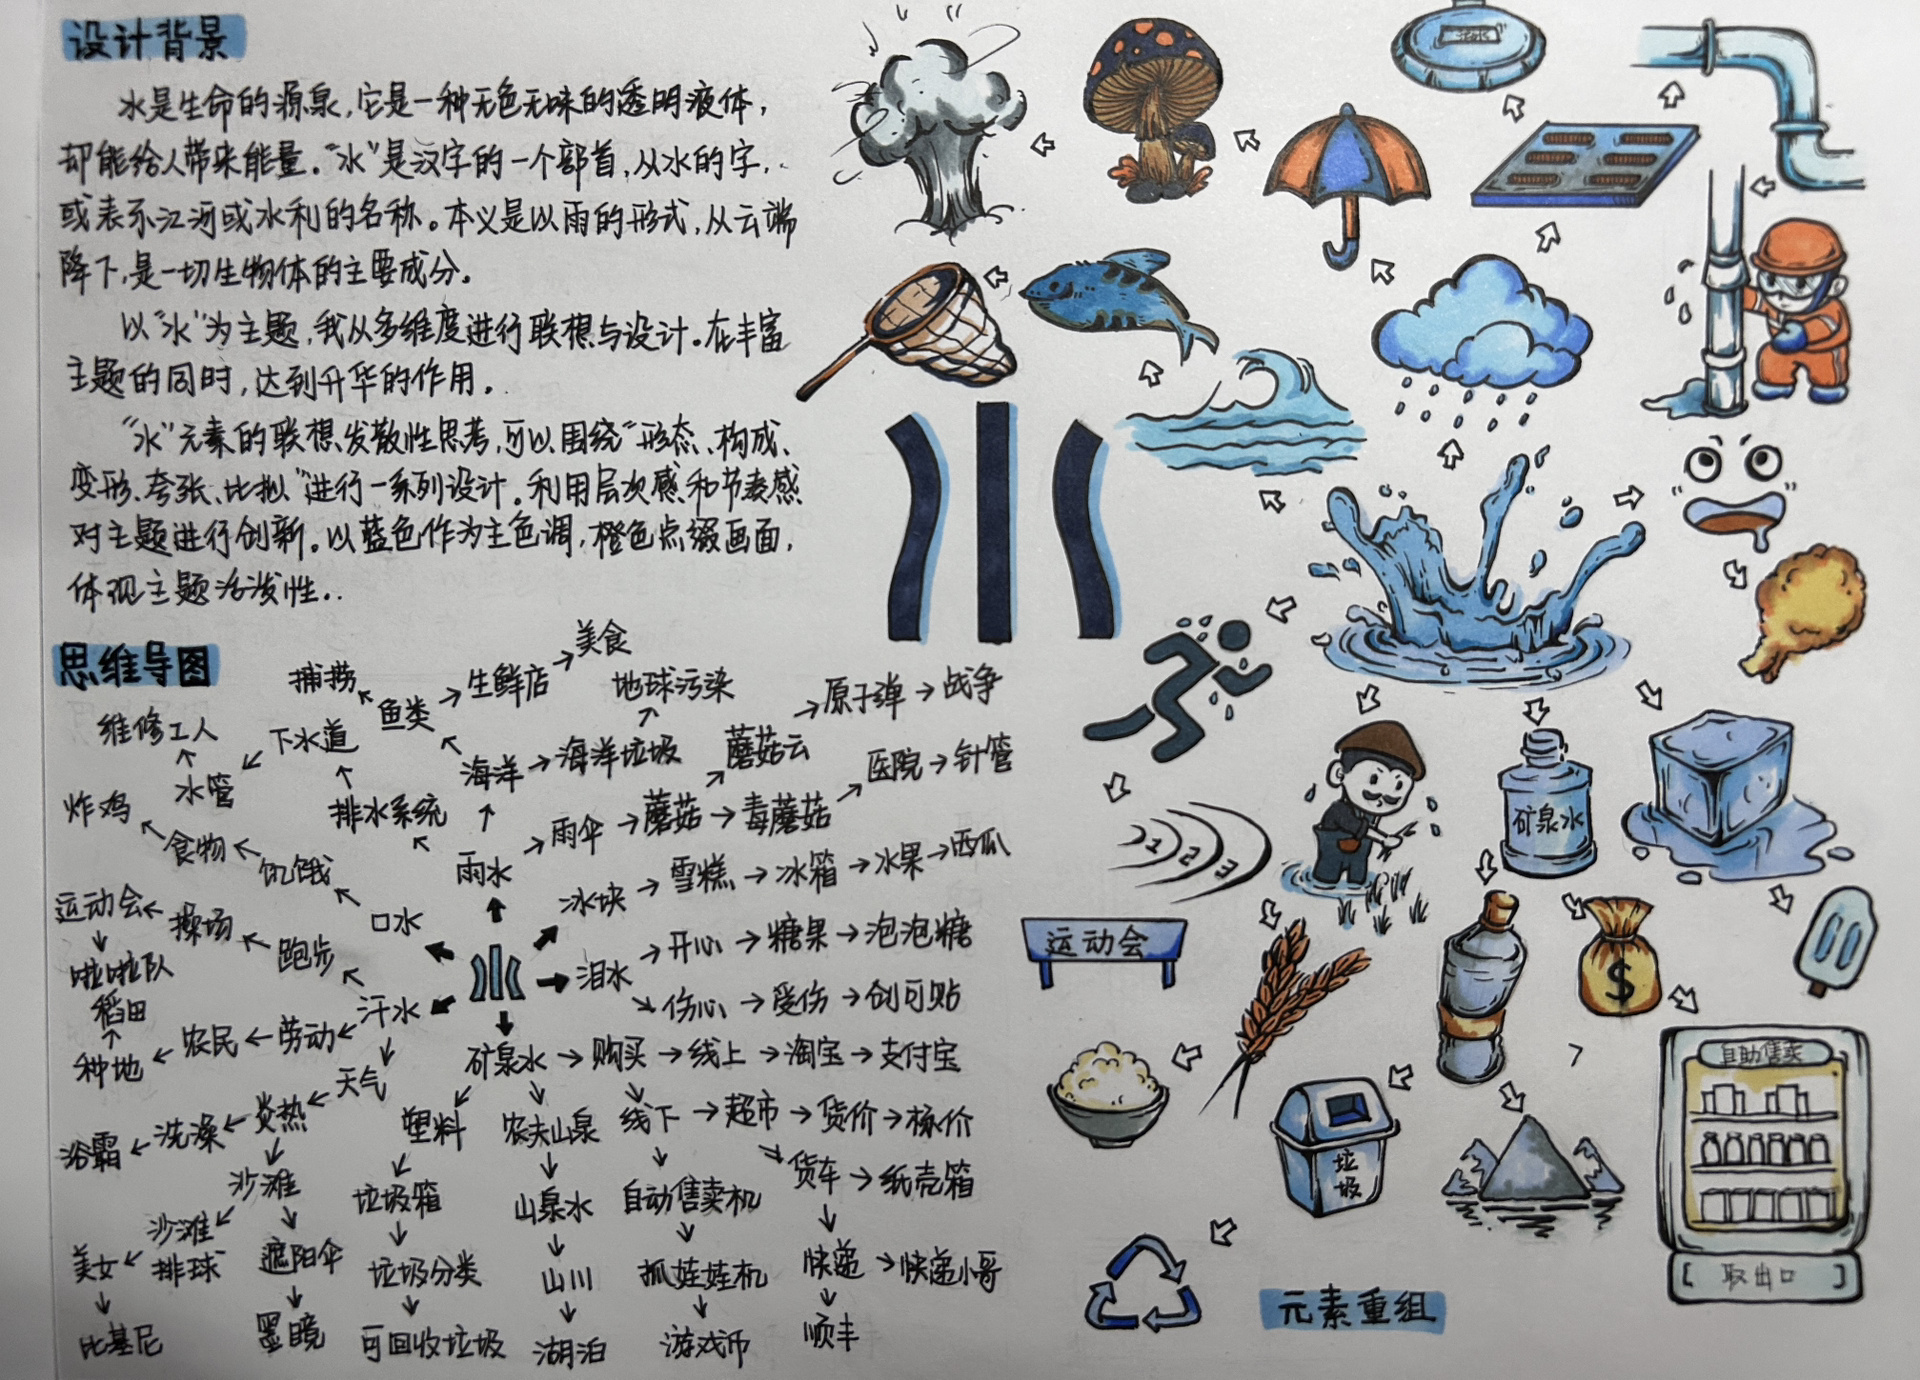 设计背景
水是生命的源泉,它是一种无色无味的透明液体,
却能给人带来能量。“水”是汉字的一个部首,从水的字,
或表示江河或水利的名称。本义是以雨的形式,从云端
降下,是一切生物体的主要成分。
以“水”为主题,我从多维度进行联想与设计。在丰富
主题的同时,达到升华的作用。
“水”元素的联想、发散性思考,可以围绕“形态、构成、
变形、夸张、比拟”进行一系列设计。利用层次感和节奏感
对主题进行创新。以蓝色作为主色调,橙色点缀画面,
体现主题活泼性..
思维导图
捕捞 鱼类 → 生鲜店 → 美食
地球污染
维修工人
下水道
水管
排水系统
海洋 → 海洋垃圾
蘑菇云 → 原子弹 → 战争
炸鸡
食物
饥饿
口水
雨水 → 雨伞 → 蘑菇 → 毒蘑菇 → 医院 → 针管
冰块 → 雪糕 → 冰箱 → 水果 → 西瓜
运动会 ← 操场 ← 跑步
啦啦队
泪水 → 开心 → 糖果 → 泡泡糖
伤心 → 受伤 → 创可贴
稻田
种地 ← 农民 ← 劳动 ← 汗水
矿泉水 → 购买 → 线上 → 淘宝 → 支付宝
天气
浴霸 ← 洗澡 ← 炎热
塑料 农夫山泉 线下 → 超市 → 货价 → 标价
沙滩
垃圾箱 山泉水 自动售卖机 货车 → 纸壳箱
沙滩
美女 ← 排球 遮阳伞 垃圾分类 山川 抓娃娃机 快递 → 快递小哥
比基尼 墨镜 可回收垃圾 湖泊 游戏币 顺丰
矿泉水
1 2 3
运动会
$
自助售卖
垃
圾
[ 取出口 ]
元素重组